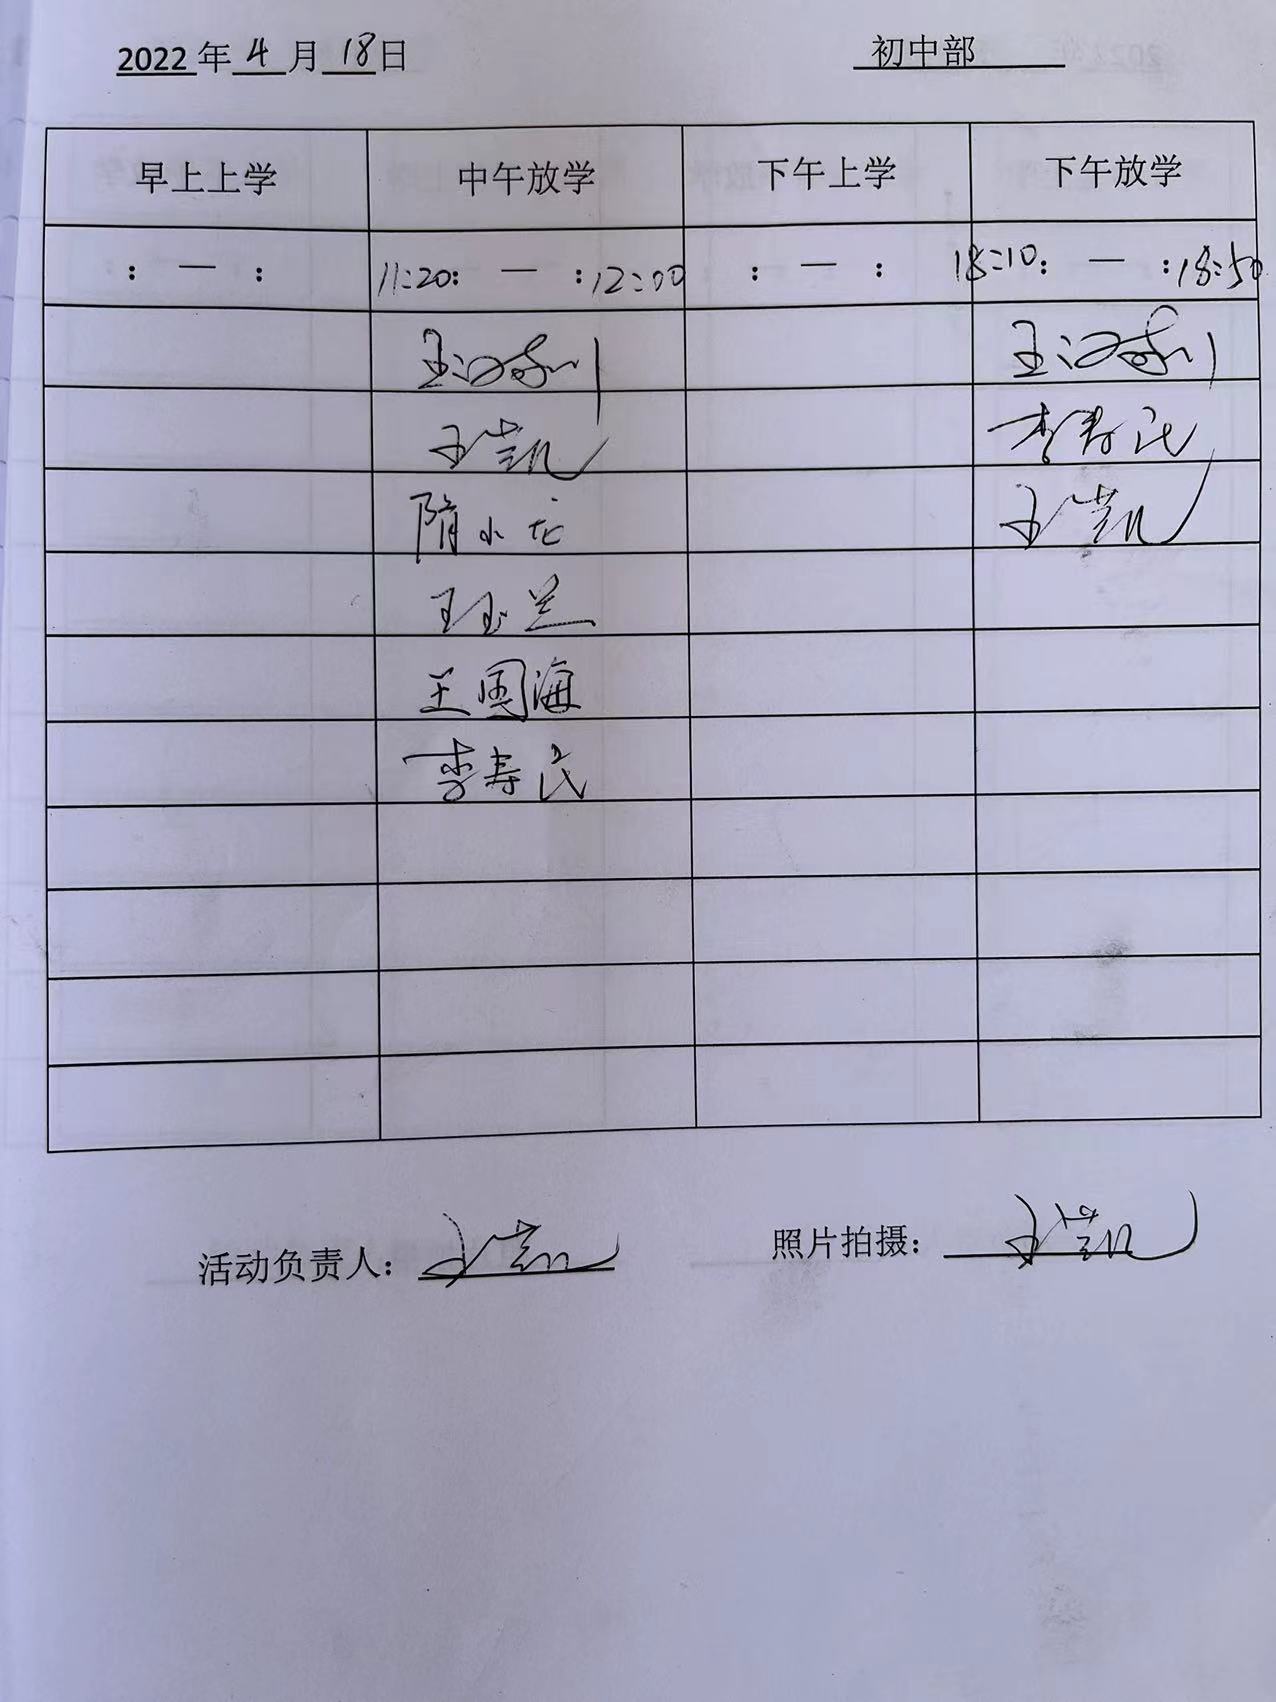 2022年4月18日 初中部
早上上学 中午放学 下午上学 下午放学
: — : 11:20: — :12:00 : — : 18:10: — :18:50
王汉利 王汉利
王凯 李寿民
隋小龙 王凯
王玉兰
王国海
李寿民
活动负责人: 王凯 照片拍摄: 王凯